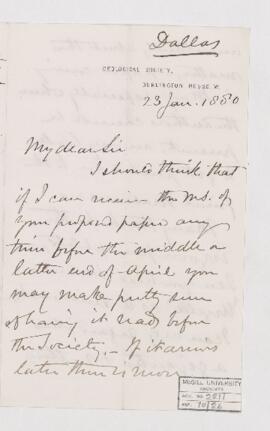 Dallas
GEOLOGICAL SOCIETY,
BURLINGTON HOUSE. W.
23 Jan. 1880
My dear Sir
I should think that
if I can receive the MS. of
your proposed paper any
time before the middle or
latter end of April you
may make pretty sure
of having it read before
the Society. – If it arrives
later there is more
McGILL UNIVERSITY
ARCHIVES
ACC. NO. 2211
REF.